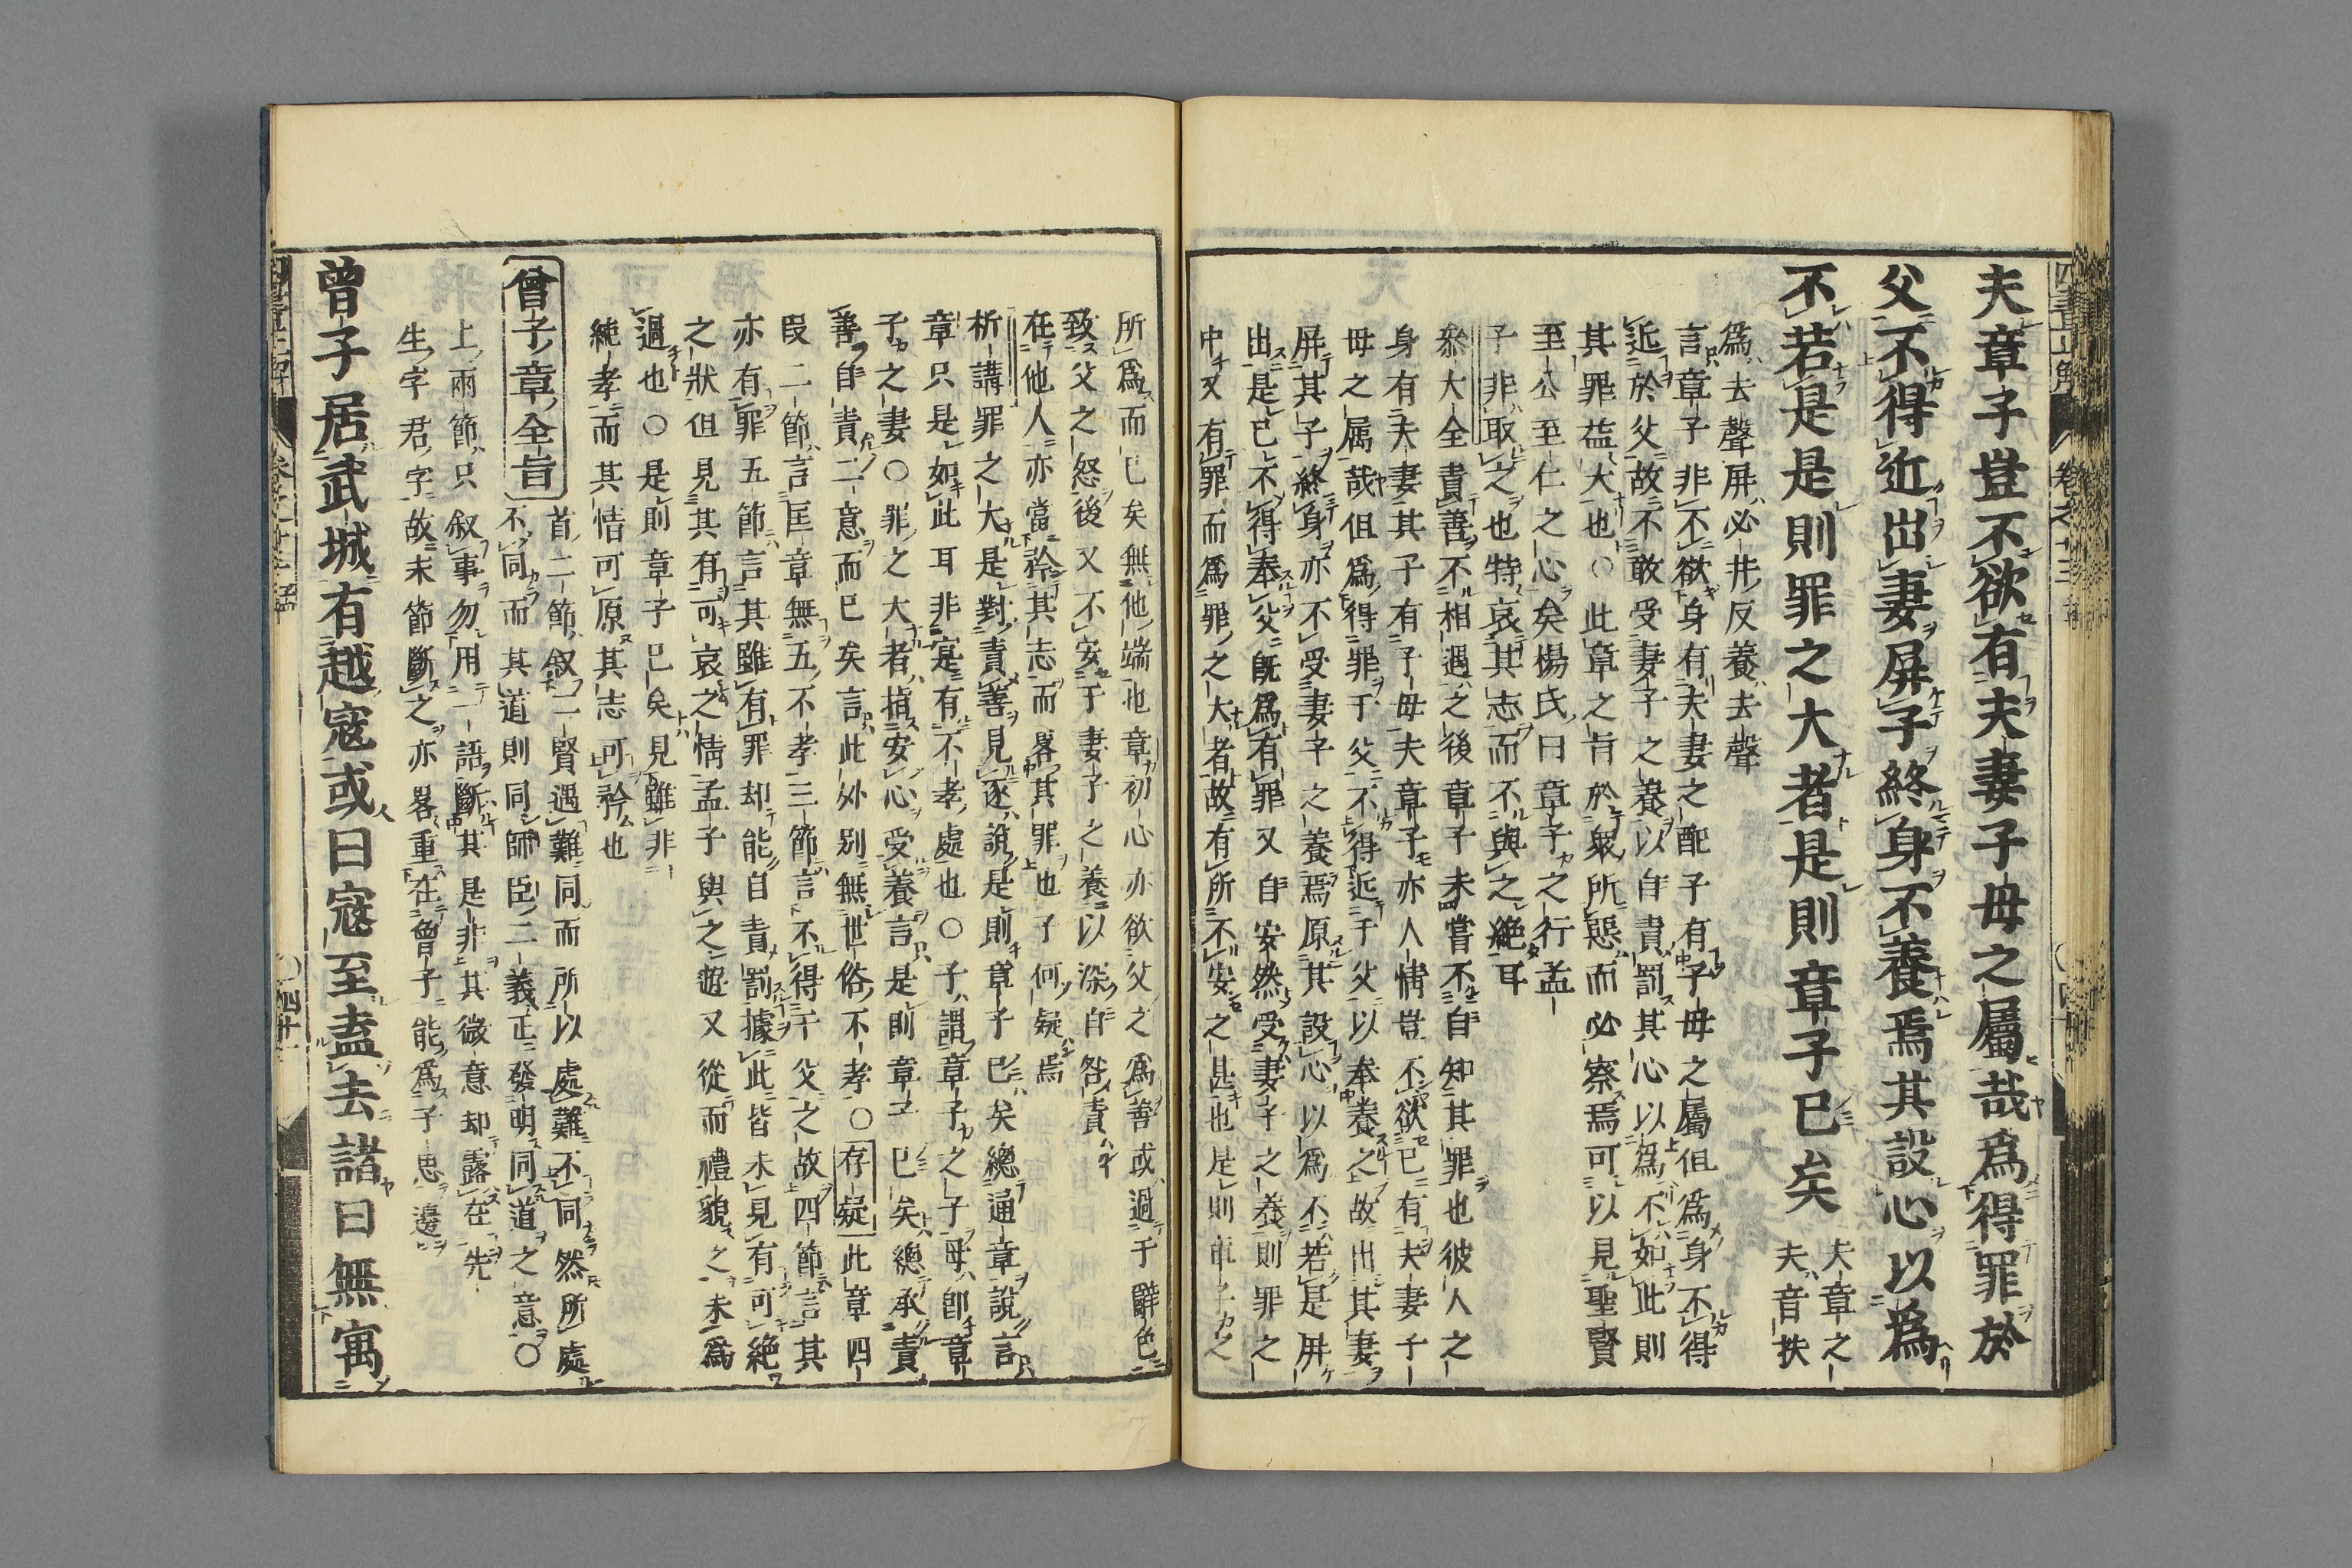 夫章子豈不欲有夫妻子母之屬哉爲得罪於
父不得近出妻屏子終身不養焉其設心以爲
不若是是則罪之大者是則章子已矣
夫章之
夫音扶
爲去聲屏必井反養去聲
言章子非不欲身有夫妻之配子有子母之屬但爲身不得
近於父故不敢受妻子之養以自責罰其心以爲不如此則
其罪益大也○此章之旨於衆所惡而必察焉可以見聖賢
至公至仁之心矣楊氏曰章子之行孟
子非取之也特哀其志而不與之絶耳
叅大全責善不相遇之後章子未嘗不自知其罪也彼人之
身有夫妻其子有子母夫章子亦人情豈不欲已有夫妻子
母之属哉但爲得罪于父不得近于父以奉養之故出其妻
屏其子終身亦不受妻子之養焉原其設心以爲不若是屏
出是已不得奉父既爲有罪又自安然受妻子之养則罪之
中又有罪而爲罪之大者故有所不安之甚也是則章子之
所爲而已矣無他端也章初心亦欲父之爲善或過于辭色
致父之怒後又不安于妻子之養以深自咎責
在他人亦當矜其志而畧其罪也子何疑焉
析講罪之大是對責善見逐說是則章子已矣總通章說言
章只是如此耳非寔有不孝處也○子謂章子之子母卽章
子之妻○罪之大者指安心受養言是則章子已矣總承責
善自責二意而已矣言此外别無世俗不孝○存疑此章四
段二節言匡章無五不孝三節言不得于父之故四節言其
亦有罪五節言其雖有罪却能自責罰據此皆未見有可絶
之狀但見其有可哀之情孟子與之遊又從而禮貌之未爲
過也○是則章子已矣見雖非
純孝而其情可原其志可矜也
曾子章全旨
首二節叙二賢遇難同而所以處難不同然所處
不同而其道則同師臣二義正發明同道之意○
上兩節只叙事勿用一語斷其是非其微意却露在先
生字君字故末節斷之亦畧重在曾子能爲子思邊
曾子居武城有越寇或曰寇至盍去諸曰無寓